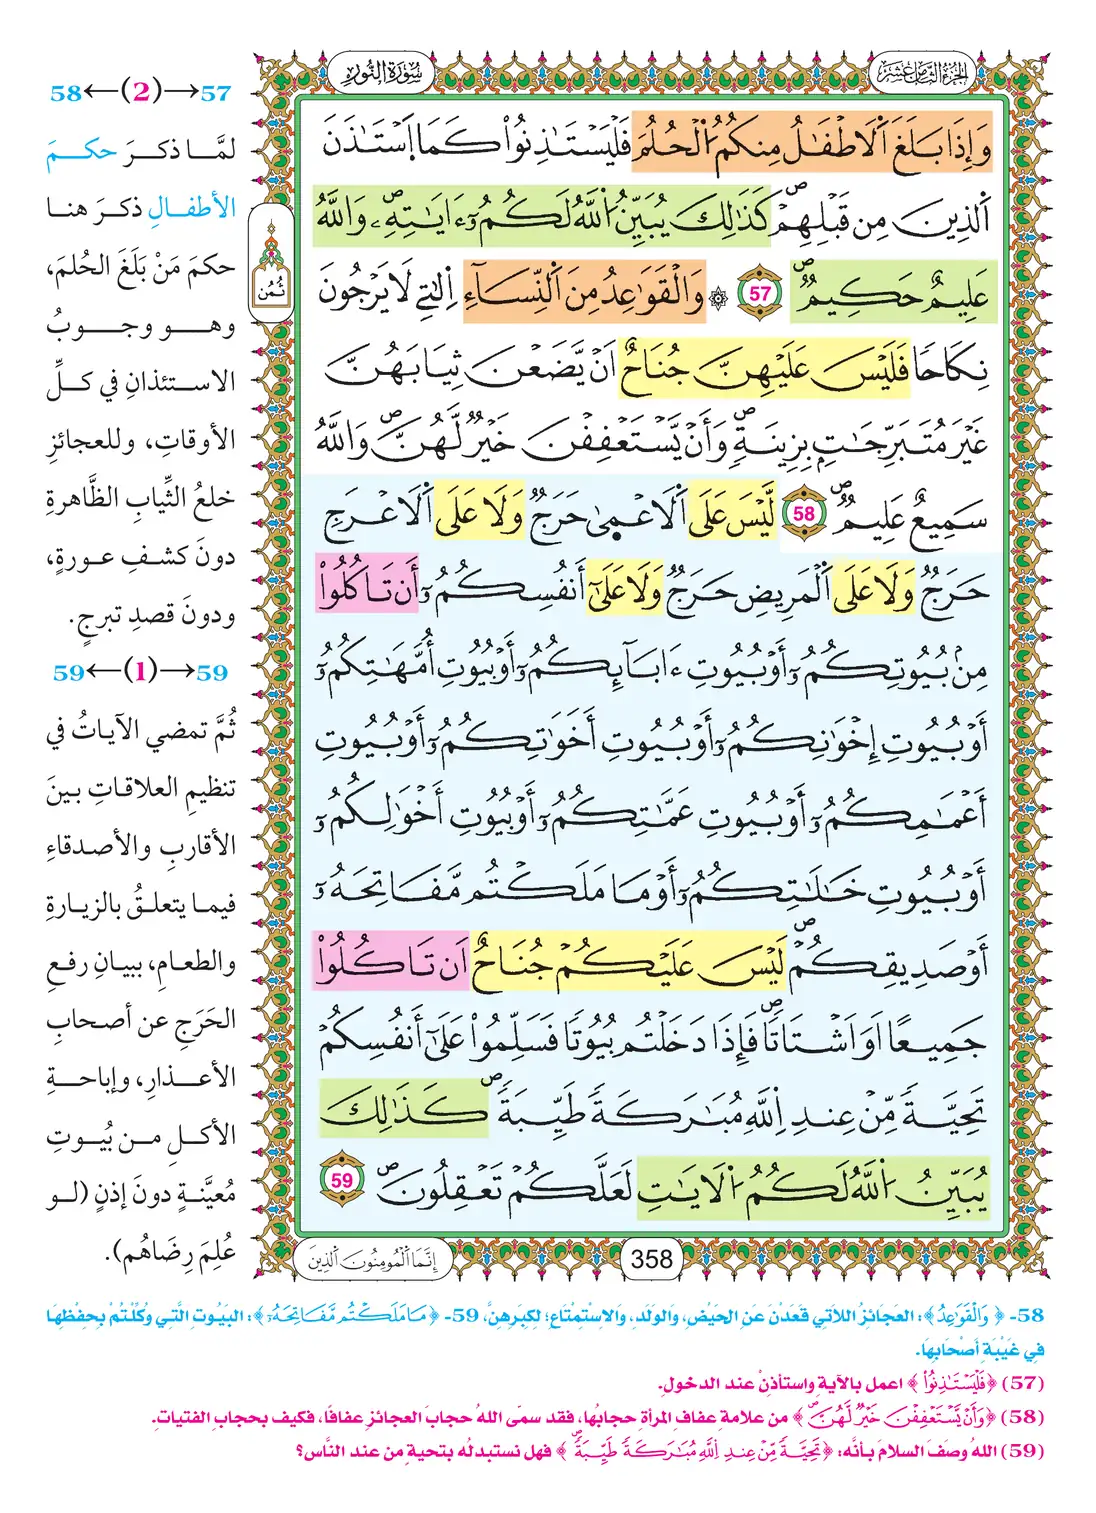 الجزء الثامن عشر
سورة النور
وَإِذَا بَلَغَ اَ۬لَاطْفَٰلُ مِنكُمُ اُ۬لْحُلُمَ فَلْيَسْتَٰذِنُواْ كَمَا اَ۪سْتَٰذَنَ
اَ۬لذِينَ مِن قَبْلِهِمْۖ كَذَٰلِكَ يُبَيِّنُ اُ۬للَّهُ لَكُمُۥٓ ءَايَٰتِهِۦۖ وَاللَّهُ
عَلِيمٌ حَكِيمٌۖ 57 ۞ وَالْقَوَٰعِدُ مِنَ اَ۬لنِّسَآءِ اِ۬لٰتِے لَا يَرْجُونَ
نِكَاحاٗ فَلَيْسَ عَلَيْهِنَّ جُنَاحٌ اَنْ يَّضَعْنَ ثِيَابَهُنَّ
غَيْرَ مُتَبَرِّجَٰتِۢ بِزِينَةٖۖ وَأَنْ يَّسْتَعْفِفْنَ خَيْرٞ لَّهُنَّۖ وَاللَّهُ
سَمِيعٌ عَلِيمٞۖ 58 لَّيْسَ عَلَى اَ۬لَاعْمۭيٰ حَرَجٞ وَلَا عَلَى اَ۬لَاعْرَجِ
حَرَجٞ وَلَا عَلَى اَ۬لْمَرِيضِ حَرَجٞ وَلَا عَلَىٰٓ أَنفُسِكُمُۥٓ أَن تَاكُلُواْ
مِنۢ بُيُوتِكُمُۥٓ أَوْ بُيُوتِ ءَابَآئِكُمُۥٓ أَوْ بُيُوتِ أُمَّهَٰتِكُمُۥٓ
أَوْ بُيُوتِ إِخْوَٰنِكُمُۥٓ أَوْ بُيُوتِ أَخَوَٰتِكُمُۥٓ أَوْ بُيُوتِ
أَعْمَٰمِكُمُۥٓ أَوْ بُيُوتِ عَمَّٰتِكُمُۥٓ أَوْ بُيُوتِ أَخْوَٰلِكُمُۥٓ
أَوْ بُيُوتِ خَٰلَٰتِكُمُۥٓ أَوْ مَا مَلَكْتُم مَّفَاتِحَهُۥٓ
أَوْ صَدِيقِكُمْۖ لَيْسَ عَلَيْكُمْ جُنَاحٌ اَن تَاكُلُواْ
جَمِيعاً اَوَ اَشْتَاتاٗۖ فَإِذَا دَخَلْتُم بُيُوتاٗ فَسَلِّمُواْ عَلَىٰٓ أَنفُسِكُمْ
تَحِيَّةٗ مِّنْ عِندِ اِ۬للَّهِ مُبَٰرَكَةٗ طَيِّبَةٗۖ كَذَٰلِكَ
يُبَيِّنُ اُ۬للَّهُ لَكُمُ اُ۬لَايَٰتِ لَعَلَّكُمْ تَعْقِلُونَۖ 59
إِنَّمَا اَ۬لْمُومِنُونَ اَ۬لذِينَ
358
ثُمُن
57→(2)←58
لمَّا ذكرَ حكمَ
الأطفالِ ذكرَ هنا
حكمَ مَنْ بَلَغَ الحُلمَ،
وهو وجوبُ
الاستئذانِ في كلِّ
الأوقاتِ، وللعجائزِ
خلعُ الثِّيابِ الظَّاهرةِ
دونَ كشفِ عورةٍ،
ودونَ قصدِ تبرجٍ.
59→(1)←59
ثُمَّ تمضي الآياتُ في
تنظيمِ العلاقاتِ بينَ
الأقاربِ والأصدقاءِ
فيما يتعلقُ بالزيارةِ
والطعامِ، ببيانِ رفعِ
الحَرَجِ عن أصحابِ
الأعذارِ، وإباحةِ
الأكلِ من بُيوتِ
مُعيَّنةٍ دونَ إذنٍ (لو
عُلِمَ رِضَاهُم).
58- ﴿وَالْقَوَٰعِدُ﴾: العَجائزُ اللاتي قَعَدْنَ عَنِ الحَيْضِ، وَالوَلَدِ، وَالاسْتِمْتَاعِ؛ لكِبَرِهِنَّ، 59- ﴿مَا مَلَكْتُم مَّفَاتِحَهُۥٓ﴾: البُيُوتِ الَّتِي وُكِّلْتُمْ بِحِفْظِهَا
فِي غَيْبَةِ أَصْحَابِهَا.
(57) ﴿فَلْيَسْتَٰذِنُواْ﴾ اعمل بالآيةِ واستأذِنْ عند الدخولِ.
(58) ﴿وَأَنْ يَّسْتَعْفِفْنَ خَيْرٞ لَّهُنَّۖ﴾ من علامةِ عفافِ المرأةِ حجابُها، فقد سمّى اللهُ حجابَ العجائزِ عفافًا، فكيف بحجابِ الفتياتِ.
(59) اللهُ وصَفَ السلامَ بأنَّه: ﴿تَحِيَّةٗ مِّنْ عِندِ اِ۬للَّهِ مُبَٰرَكَةٗ طَيِّبَةٗۖ﴾ فهل نستبدلُه بتحيةٍ من عند النَّاس؟